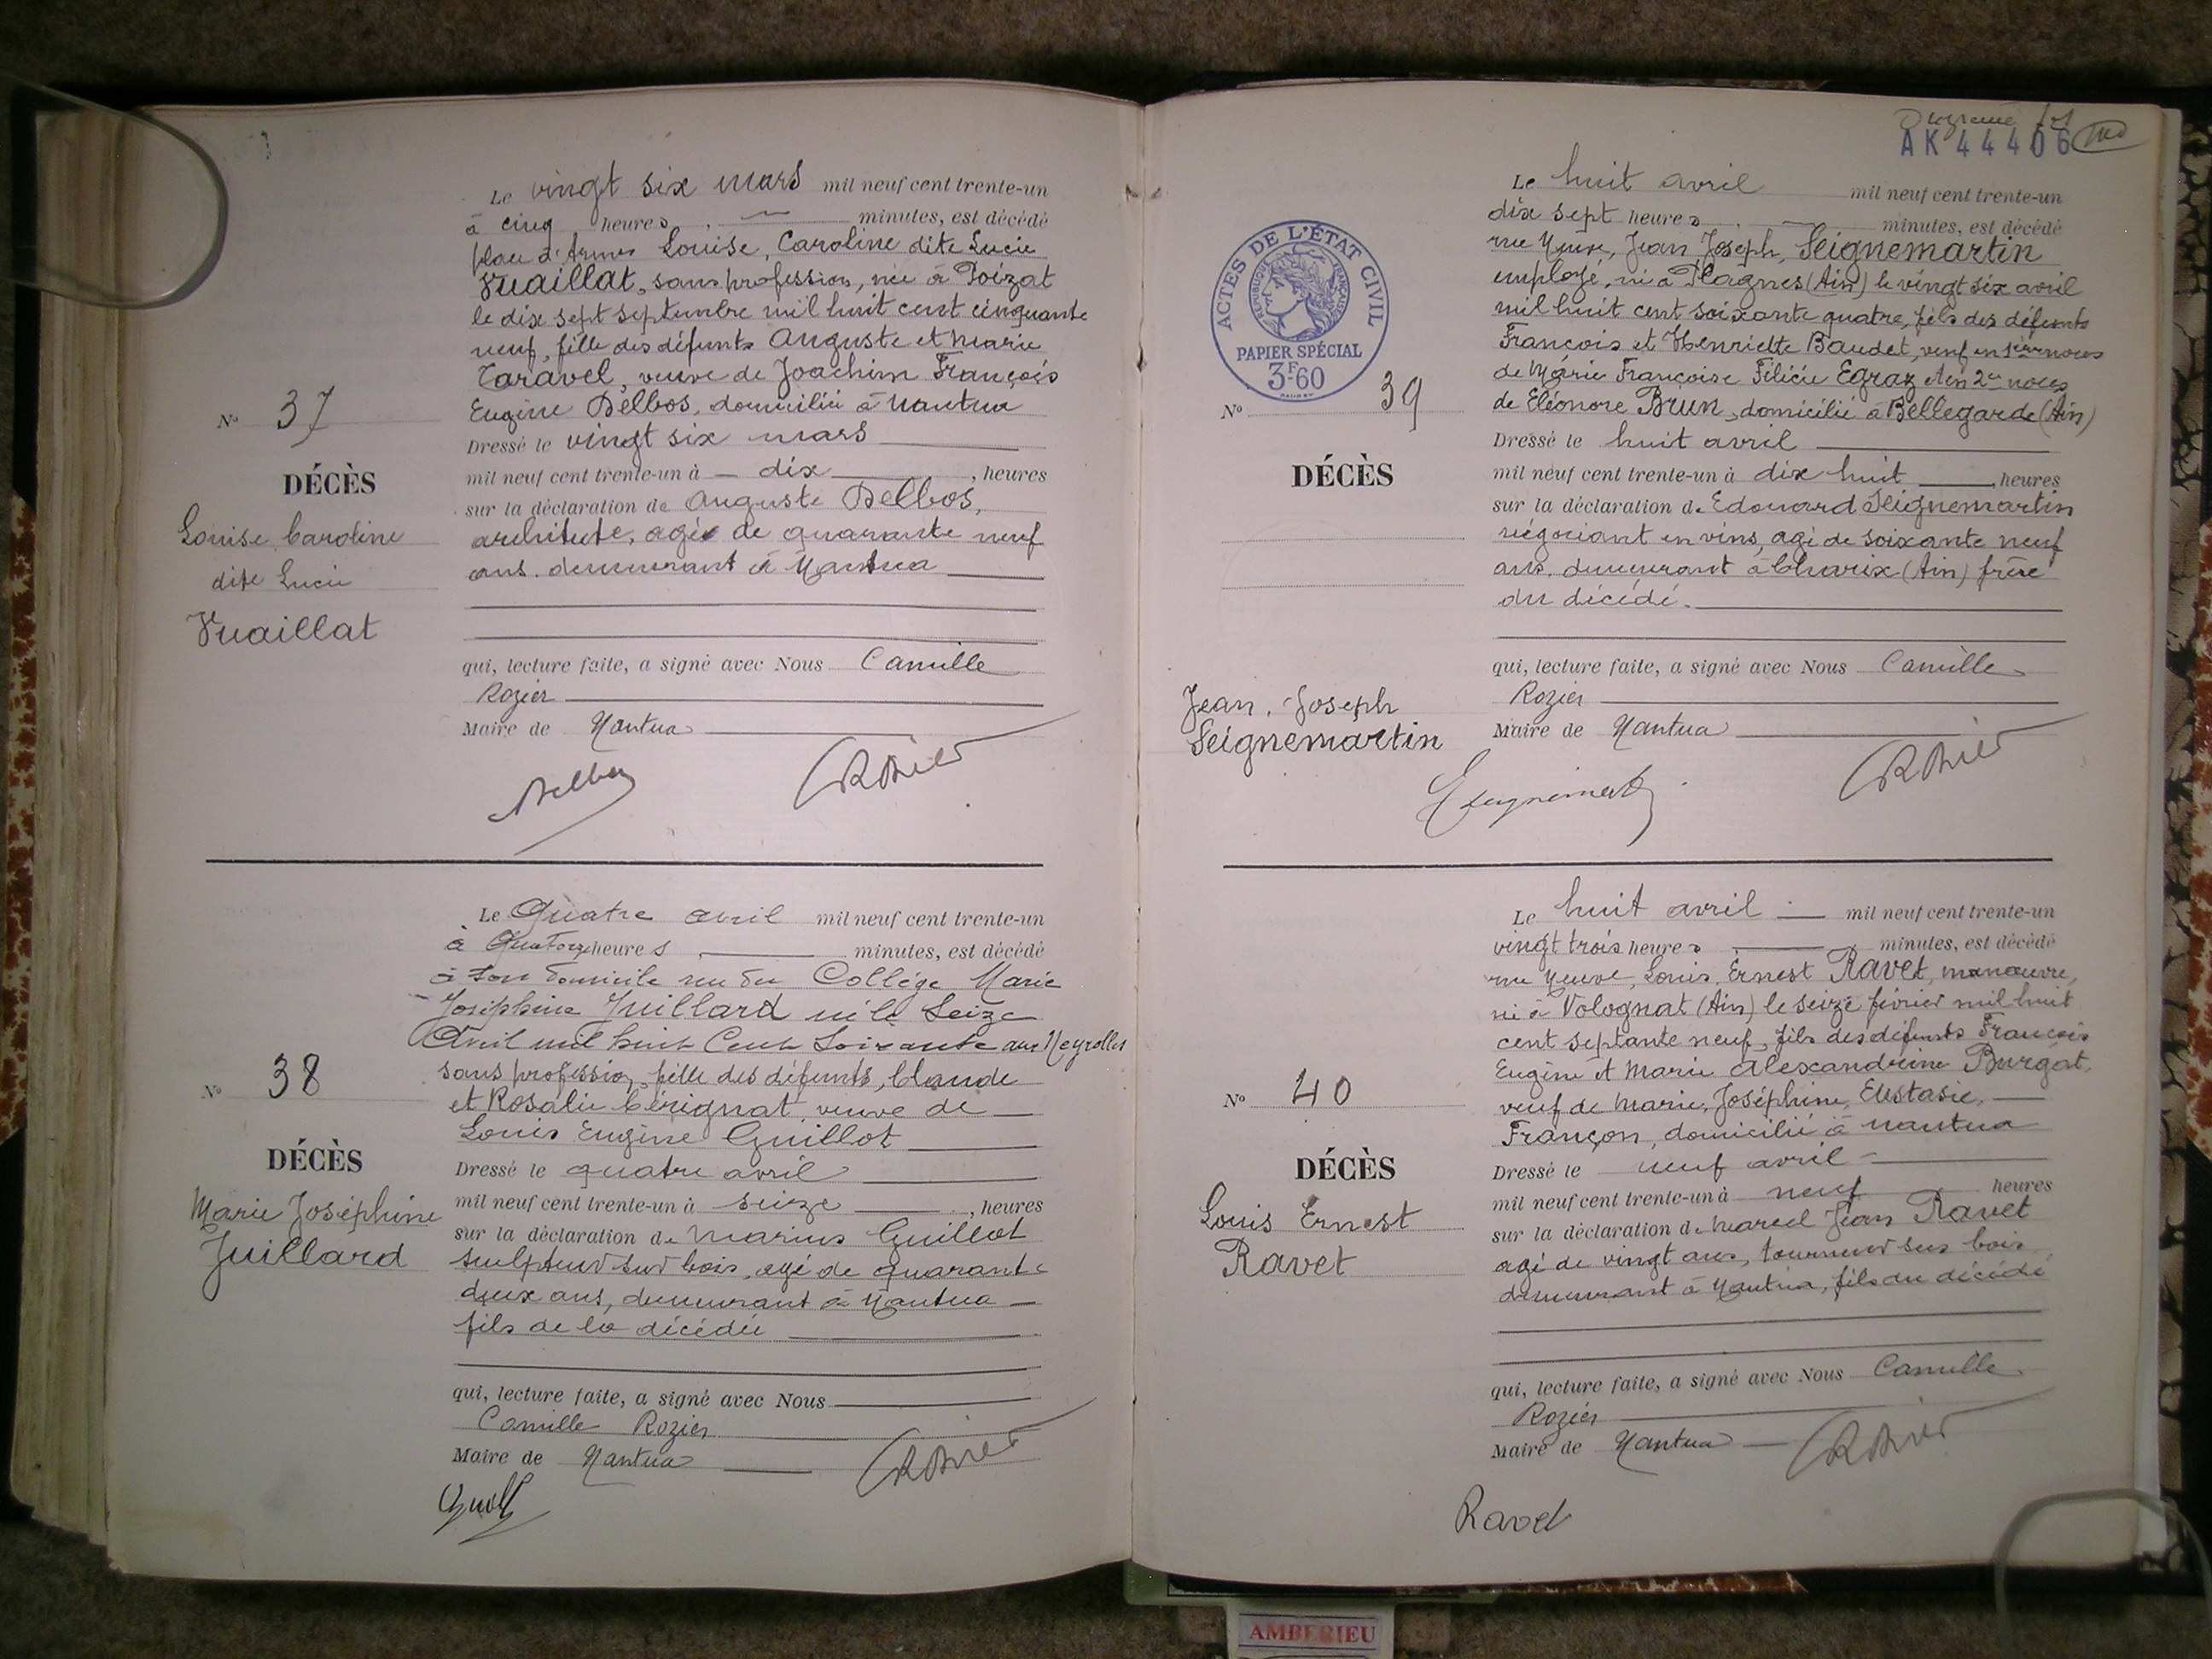 Le vingt six mars mil neuf cent trente-un
à cinq heures, — minutes, est décédé
place d'Armes Louise, Caroline dite Lucie
Vuaillat, sans profession, née à Poizat
le dix sept septembre mil huit cent cinquante
neuf, fille des défunts Auguste et Marie
Taravel, veuve de Joachim François
Eugène Delbos, domiciliée à Nantua
N° 37
Dressé le vingt six mars
DÉCÈS
mil neuf cent trente-un à — dix, heures
sur la déclaration de Auguste Delbos,
Louise Caroline
architecte, agé de quarante neuf
dite Lucie
ans. demeurant à Nantua
Vuaillat
qui, lecture faite, a signé avec Nous Camille
Rozier
Maire de Nantua
Delbos
Rozier
Le Quatre avril mil neuf cent trente-un
à Quatorze heures, minutes, est décédé
à son domicile rue du Collège Marie
Joséphine Juillard née le Seize
Avril mil huit Cent Soixante aux Neyrolles
sans profession, fille des défunts, Claude
N° 38
et Rosalie Cérignat veuve de
Louis Eugène Guillot
DÉCÈS
Dressé le quatre avril
Marie Joséphine
mil neuf cent trente-un à seize, heures
Juillard
sur la déclaration de Marius Guillot
sculpteur sur bois, agé de quarante
deux ans, demeurant à Nantua
fils de la décédée
qui, lecture faite, a signé avec Nous
Camille Rozier
Maire de Nantua
Rozier
AK 44406
Le huit avril mil neuf cent trente-un
dix sept heures, — minutes, est décédé
rue Neuve, Jean Joseph, Seignemartin
employé, né à Plagnes (Ain) le vingt six avril
mil huit cent soixante quatre, fils des défunts
François et Henriette Baudet, veuf en 1ères noces
de Marie Françoise Félicie Egraz et en 2es noces
de Eléonore Brun, domicilié à Bellegarde (Ain)
ACTES DE L'ÉTAT CIVIL
RÉPUBLIQUE FRANÇAISE
PAPIER SPÉCIAL
3F60
N° 39
Dressé le huit avril
DÉCÈS
mil neuf cent trente-un à dix huit, heures
sur la déclaration de Edouard Seignemartin
négociant en vins, agé de soixante neuf
ans, demeurant à Charix (Ain) frère
du décédé.
qui, lecture faite, a signé avec Nous Camille
Jean, Joseph
Rozier
Seignemartin
Maire de Nantua
Rozier
Le huit avril — mil neuf cent trente-un
vingt trois heures, minutes, est décédé
rue Neuve, Louis, Ernest Ravet, manœuvre,
né à Volognat (Ain) le seize février mil huit
cent septante neuf, fils des défunts François
Eugène et Marie Alexandrine Burgat,
N° 40
veuf de Marie, Joséphine, Eustasie,
Françon, domicilié à Nantua
DÉCÈS
Dressé le neuf avril
Louis Ernest
mil neuf cent trente-un à neuf heures
Ravet
sur la déclaration de Marcel Jean Ravet
agé de vingt ans, tourneur sur bois
demeurant à Nantua, fils du décédé
qui, lecture faite, a signé avec Nous Camille
Rozier
Maire de Nantua
Rozier
Ravet
AMBERIEU